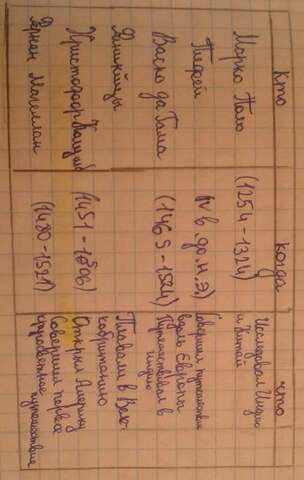 Кто когда что
Марко Поло (1254-1324) Исследовал Индию
и Китай
Пефей IV в. до н.э) Совершил путешествие
вдоль Европы
Васко да Гама (1469-1524) Путешествовал в
Индию
Финикийцы Плавали в Вели-
кобританию
Христофор Колумб (1451-1506) Открыл Америку
Фернан Магеллан (1480-1521) Совершил первое
кругосветное путешествие